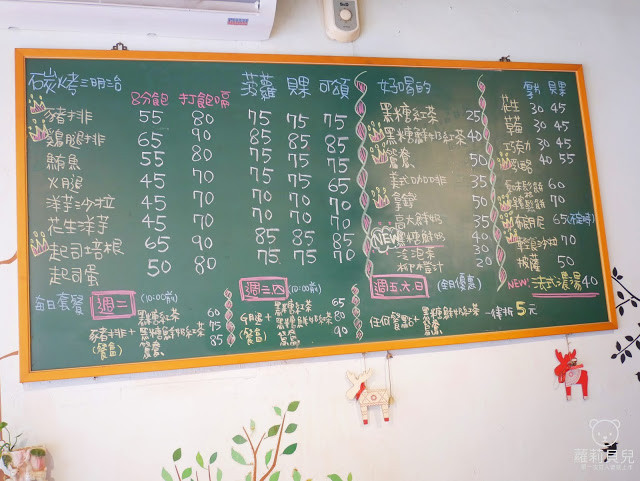 碳烤三明治
8分飽 打飽嗝
菠蘿 貝果 可頌
豬排 55 80 75 75 75
雞腿排 65 90 85 85 85
鮪魚 55 80 75 75 75
火腿 45 70 75 75 65
洋芋沙拉 45 70 75 75 70
花生洋芋 45 70 75 75 70
起司培根 65 90 85 85 85
起司蛋 50 80 75 75 75
好喝的
黑糖紅茶 25
黑糖鮮奶紅茶 40
鴛鴦 50
美式咖啡 35
拿鐵 50
高大鮮奶 35
NEW 黑糖鮮奶 40
冷泡茶 30
柳橙汁 20
厚片 貝果
花生 30 45
草莓 30 45
巧克力 30 45
乳酪 40 55
原味鬆餅 60
鬆餅 70
帕尼尼 65(不定時)
輕食沙拉 70
披薩 50
NEW! 法式濃湯 40
每日套餐
週二 (10:00前)
豬排+ 黑糖紅茶 60
黑糖鮮奶紅茶 75
鴛鴦 85
週三四 (10:00前)
火腿+ 黑糖紅茶 65
黑糖鮮奶紅茶 80
鴛鴦 90
週五六日 (全日優惠)
任何餐點+ 黑糖鮮奶紅茶 一律折5元
鴛鴦
蘿莉貝兒